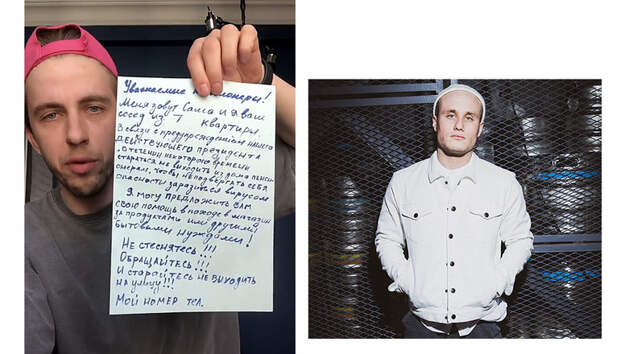 Уважаемые пенсионеры!
Меня зовут Саша и я ваш
сосед из 7 квартиры.
В связи с предупреждением нашего
действующего президента
в течении некоторого времени
стараться не выходить из дома пенси-
онерам, чтобы не подвергать себя
опасности заразиться вирусом
Я могу предложить Вам
свою помощь в походе в магазин
за продуктами или другими
бытовыми нуждами!
Не стесняйтесь!!!
Обращайтесь!!!
И старайтесь не выходить
на улицу!!!
Мой номер тел.